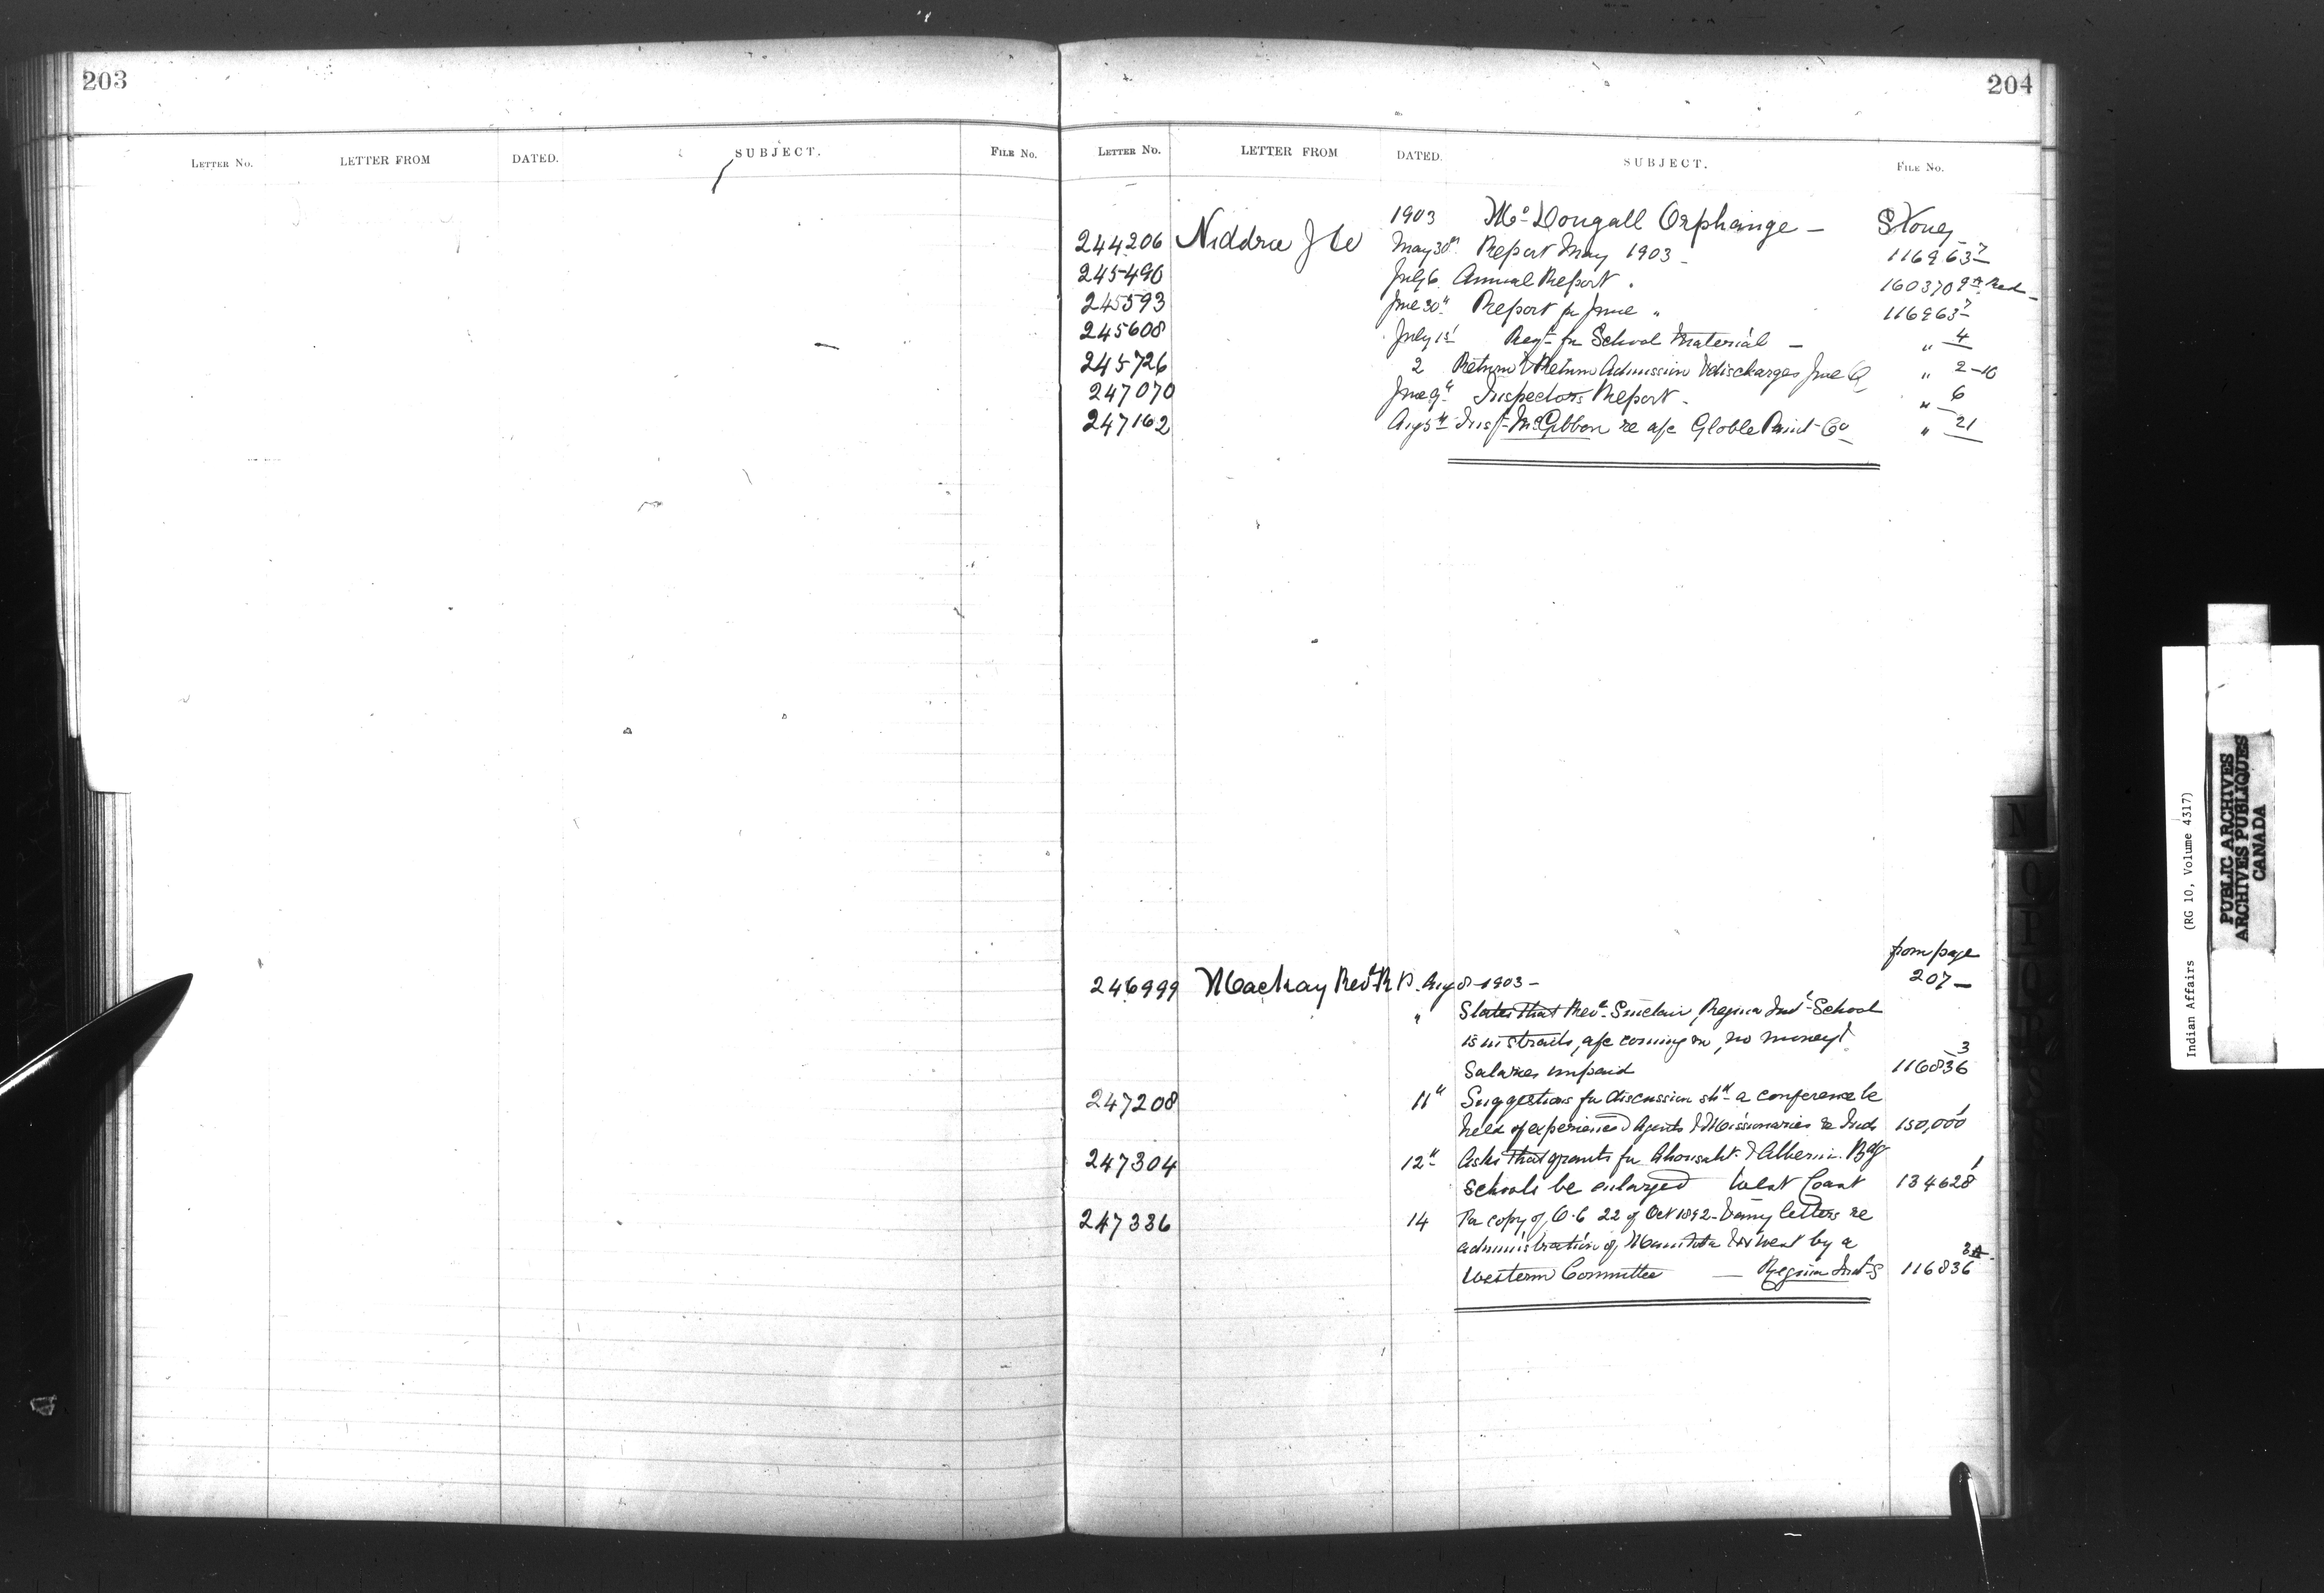 203
LETTER No. LETTER FROM DATED. SUBJECT. FILE No.
204
LETTER No. LETTER FROM DATED. SUBJECT. FILE No.
1903 Mc Dougall Orphange — Stoney
244206 Niddrie J W May 30th Report May 1903 - 116963 7
245490 July 6 Annual Report " 160370
245593 June 30th Report for June " 116963 7
245608 July 1st Reqn for School Material — " 4
245726 2 Return & Return Admission & discharges June Q " 2-10
247070 June 9th Inspectors Report - " 6
247162 Aug 5th Insp. McGibbon re a/c Globe Paint Co " 21
from page
246999 Mackay Revd R P. Aug 8 1903 - 207 —
" States that Revd Sinclair, Regina Indl School
is in straits, a/c coming in, no money &
Salaries unpaid 116836 3
247208 11th Suggestions for discussion shd a conference be
held of experienced Agents & Missionaries re Inds 150,000 1
247304 12th Asks that grants for Ahousaht & Alberni Bdg
Schools be enlarged West Coast 134628 1
247336 14 For copy of O.C 22 of Oct 1892 - & any letters re
administration of Manitoba & N West by a
Western Committee — Regina Indl S 116836 3A
N
O
P
Q
R
S
Indian Affairs (RG 10, Volume 4317)
PUBLIC ARCHIVES
ARCHIVES PUBLIQUES
CANADA